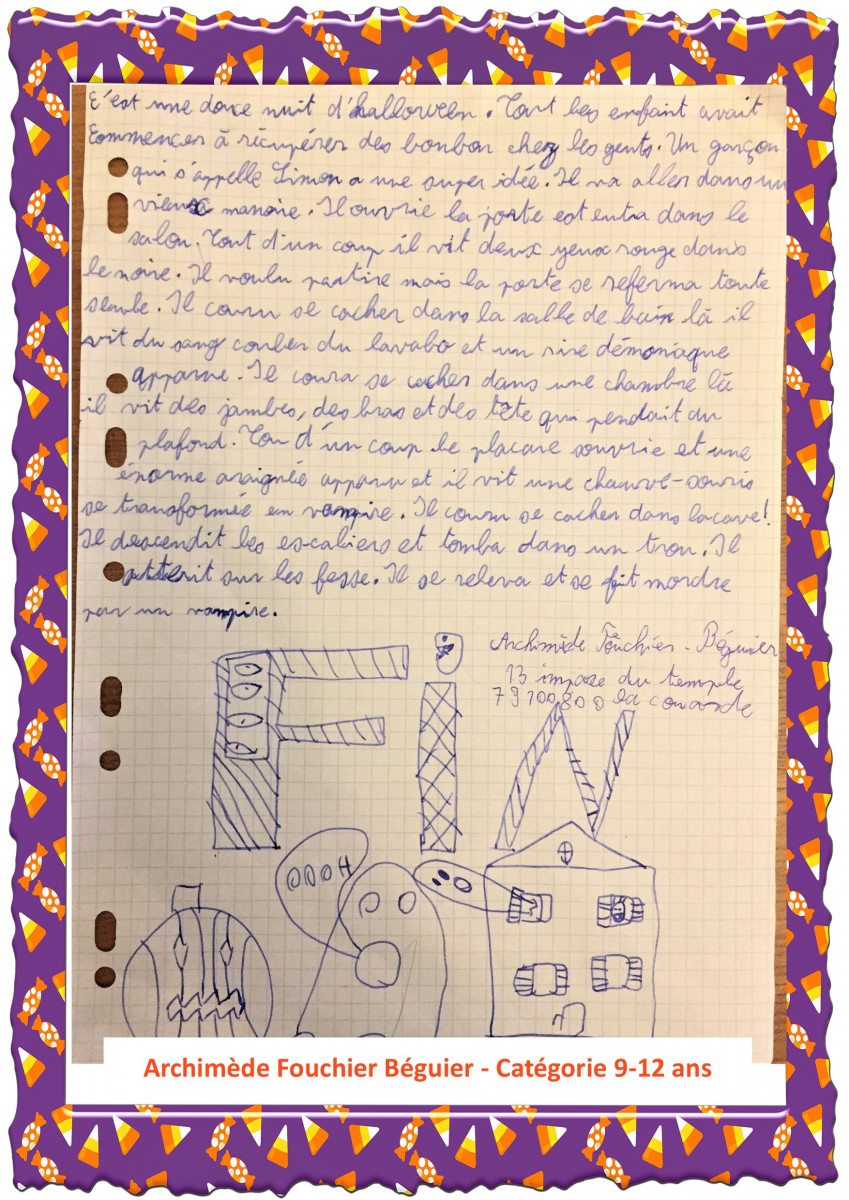 C'est une douce nuit d'halloween. Tout les enfant avait
commencer à récupérer des bonbon chez les gents. Un garçon
qui s'appelle Simon a une super idée. Il va aller dans un
vieux manoire. Il ouvrie la porte est entra dans le
salon. Tout d'un coup il vit deux yeux rouge dans
le noire. Il voulu partire mais la porte se referma toute
seule. Il couru se cacher dans la salle de bain là il
vit du sang couler du lavabo et un rire démoniaque
apparue. Il coura se cacher dans une chambre là
il vit des jambes, des bras et des tête qui pendait au
plafond. Tou d'un coup le placare souvrie et une
énorme araignée apparu et il vit une chauve-souris
se transformée en vampire. Il couru se cacher dans lacave!
Il descendit les escaliers et tomba dans un trou. Il
atterit sur les fesse. Il se releva et se fit mordre
par un vampire.
Archimède Fouchier - Béguier
13 impase du temple
79100800 la couarde
FiN
OOOH
Archimède Fouchier Béguier - Catégorie 9-12 ans